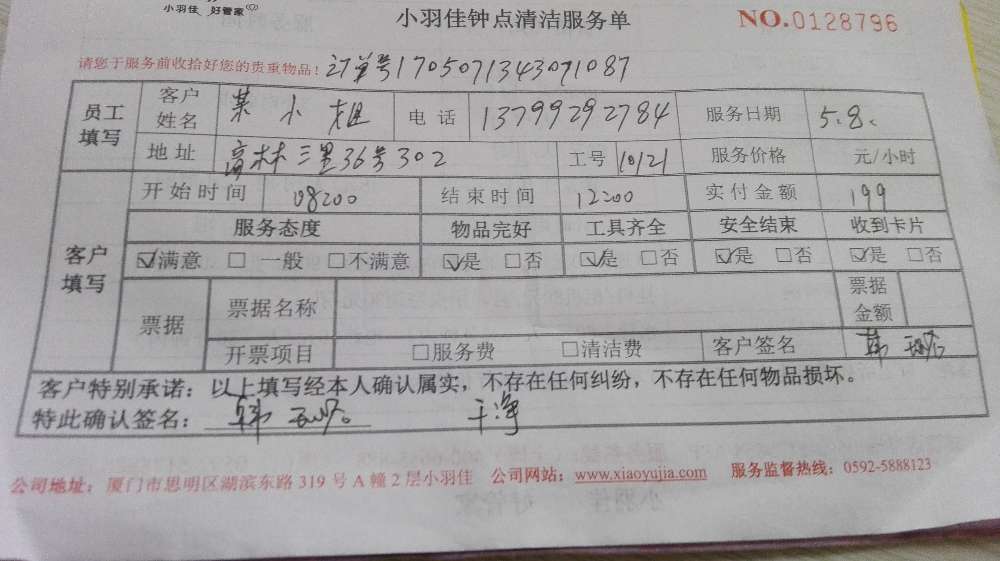 小羽佳 好管家
小羽佳钟点清洁服务单
NO.0128796
请您于服务前收拾好您的贵重物品! 订单号1705071343071087
员工填写 客户姓名 小姐 电话 13799292784 服务日期 5.8.
地址 林三里36号302 工号 10121 服务价格 元/小时
客户填写 开始时间 08:00 结束时间 12:00 实付金额 199
服务态度 物品完好 工具齐全 安全结束 收到卡片
☑满意 □ 一般 □不满意 ☑是 □否 ☑是 □否 ☑是 □否 ☑是 □否
票据 票据名称 票据金额
开票项目 □服务费 □清洁费 客户签名 韩
客户特别承诺:以上填写经本人确认属实,不存在任何纠纷,不存在任何物品损坏。
特此确认签名: 韩 干净
公司地址:厦门市思明区湖滨东路319号A幢2层小羽佳 公司网站:www.xiaoyujia.com 服务监督热线:0592-5888123